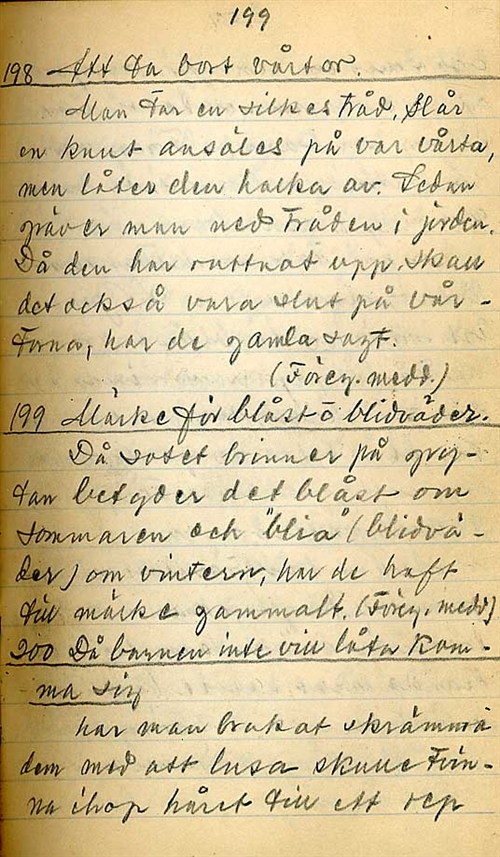 199
198 Att ta bort vårtor.
Man tar en silkestråd, slår
en knut ansåles på var vårta,
men låter den halka av. Sedan
gräver man ned tråden i jorden.
Då den har ruttnat upp, skall
det också vara slut på vår-
torna, har de gamla sagt.
(Föreg. medd.)
199 Märke för blåst o blidväder.
Då sotet brinner på gryt-
tan betyder det blåst om
sommaren och "blia" (blidvä-
der) om vintern, har de haft
till märke gammalt. (Föreg. medd)
200 Då barnen inte vill låta kam-
ma sig
har man brukat skrämma
dem med att lusa skulle tvin-
na ihop håret till ett rep